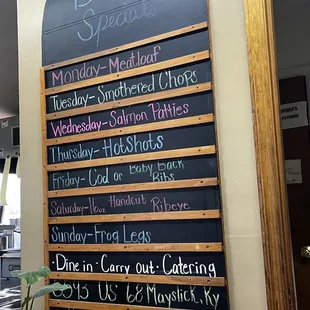 Specials
Monday - Meatloaf
Tuesday - Smothered Chops
Wednesday - Salmon Patties
Thursday - HotShots
Friday - Cod or Baby Back
Ribs
Saturday - 16oz Handcut Ribeye
Sunday - Frog Legs
• Dine in • Carry out • Catering
US 68 Mayslick, Ky